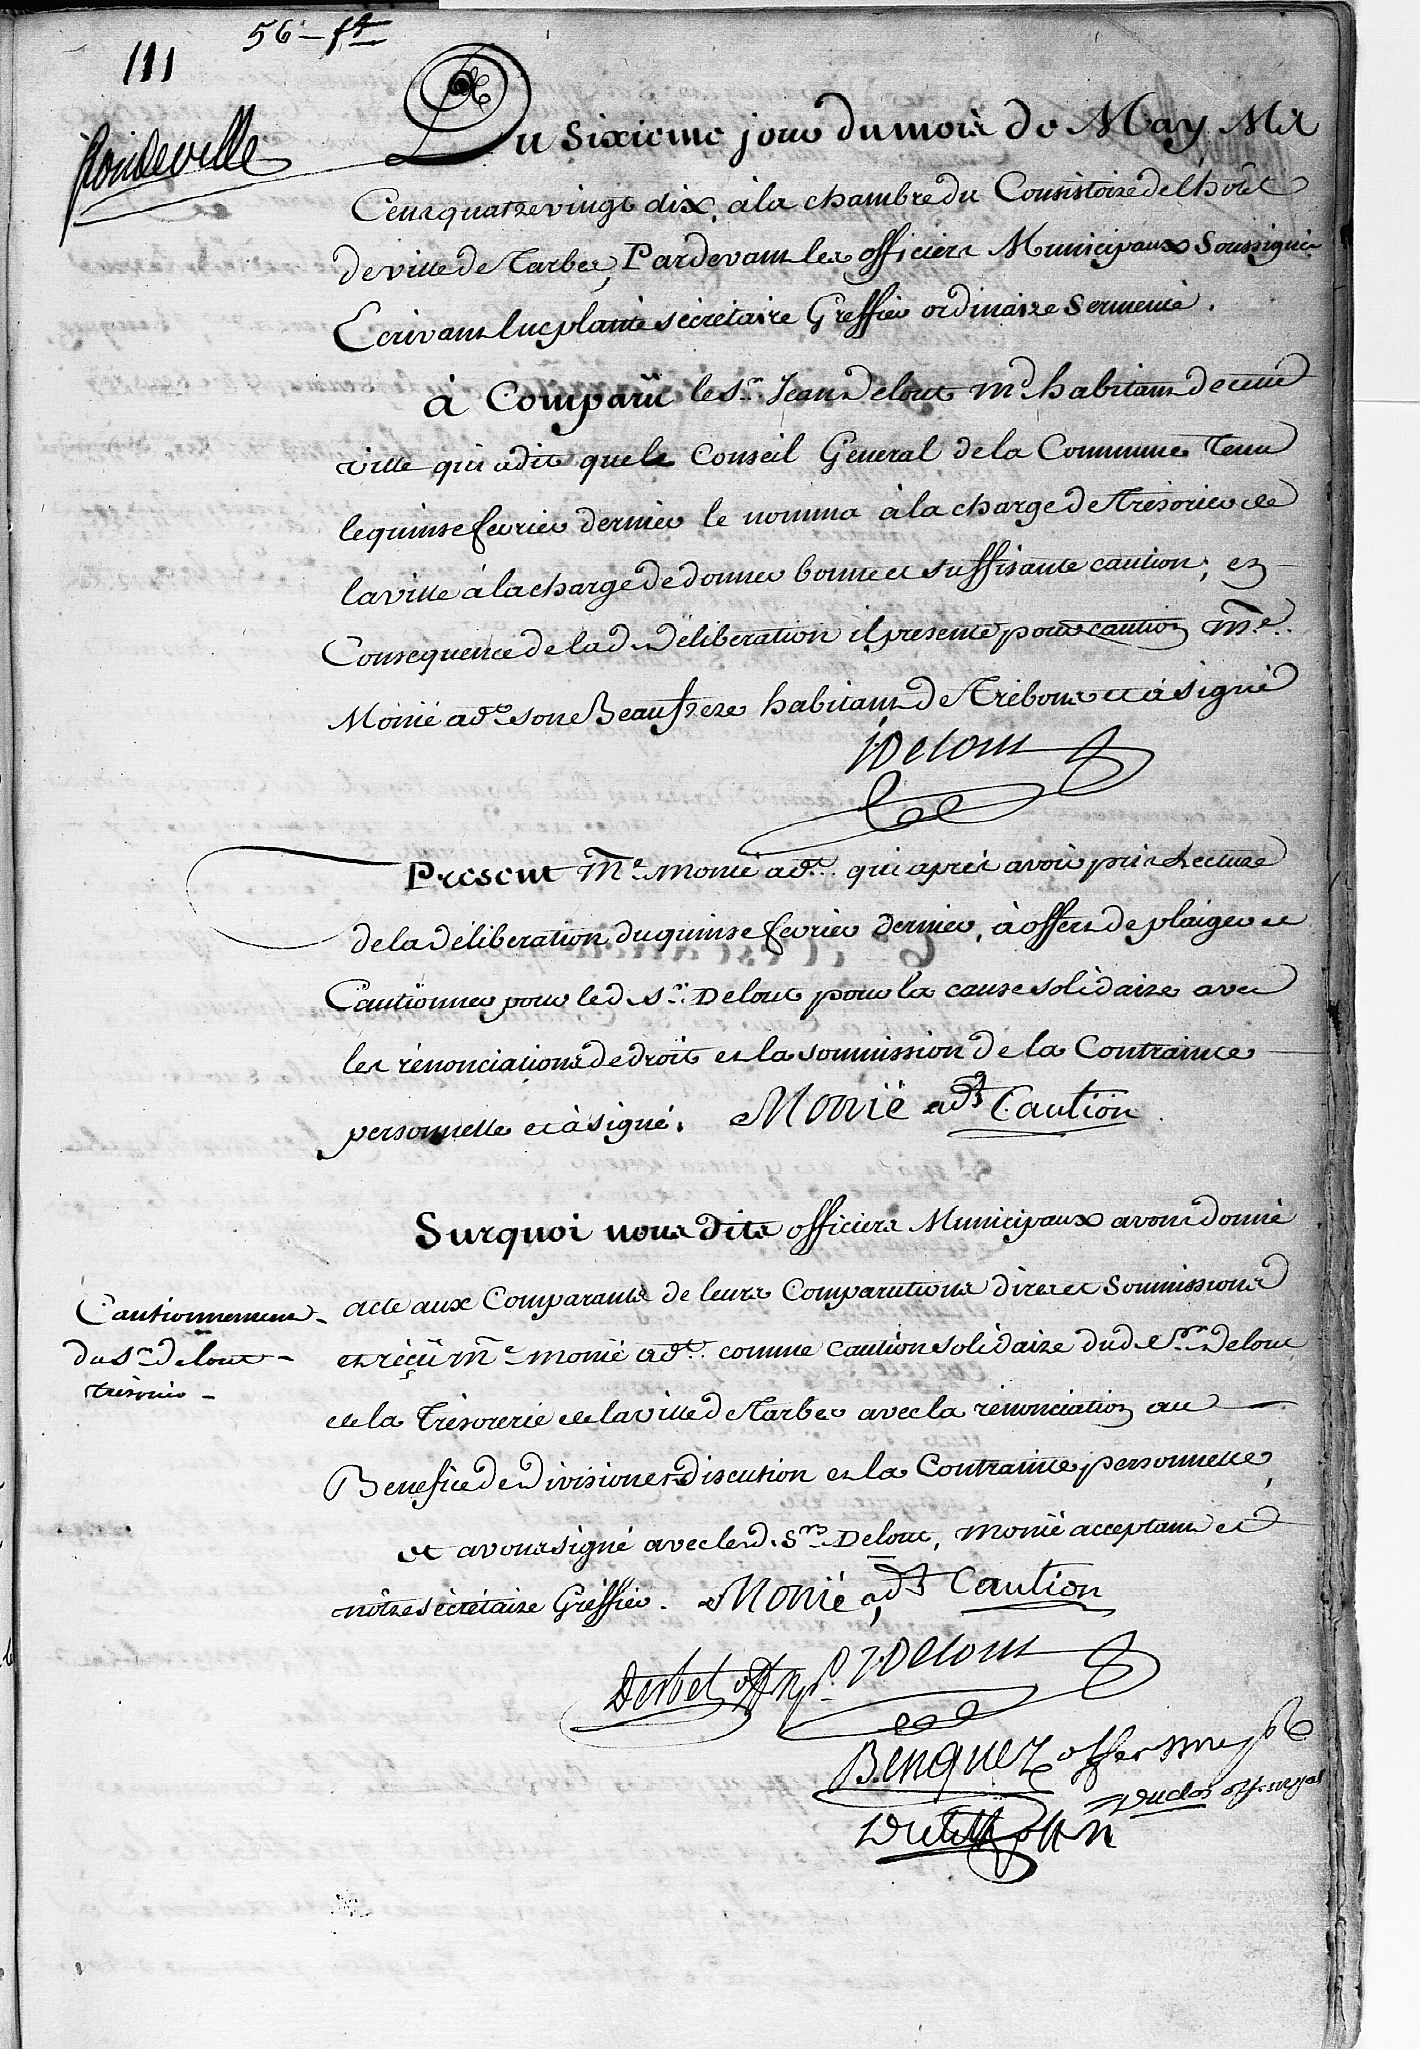 56 - ft
111
Rondeville
Du sixieme jour du mois de May Mil
Cens quatrevingt dix, à la chambre du Consistoire de l'hotel
de ville de Tarbes, Pardevant les officiers Municipaux Soussignés
Ecrivant luc plante sécrétaire Greffier ordinaire Sermenté.
à Comparü le Sr. Jean Delout md. habitant de cette
ville qui a dit que le Conseil General de la Commune tenu
le quinse fevrier dernier le nomma à la charge de Trésorier de
la ville à la charge de donner bonne et suffisante caution, en
Consequence de lad. Déliberation il presente pour caution me.
Monié adt. son Beaufrere habitant de Trébons et à signé
J. Delout
Present Me. Monié adt. qui après avoir pris Lecture
de la Déliberation du quinse fevrier dernier, à offert de plaiger et
Cautionner pour led. Sr. Delout pour la cause solidaire avec
les rénonciations de droit et la soumission de la Contrainte
personnelle et à signé. Monié adt Caution
Surquoi nous dits officiers Municipaux avons donné
acte aux Comparants de leurs Comparutions dires et Soumissions
et réçü me. monié adt. comme caution solidaire dud. Sr. Delout
de la Trésorerie de la ville de Tarbes avec la rénonciation au
Benefice de Division et discution et la Contrainte personnelle,
et avons signé avec led. Srs. Delout, Monié acceptant et
nôtre sécrétaire Greffier. Monié adt Caution
Cautionnement
du Sr. delout
trésorier
Derbet off. mpl. J. Delout
Benquez offer mpl
Duclos off. mpal
off m